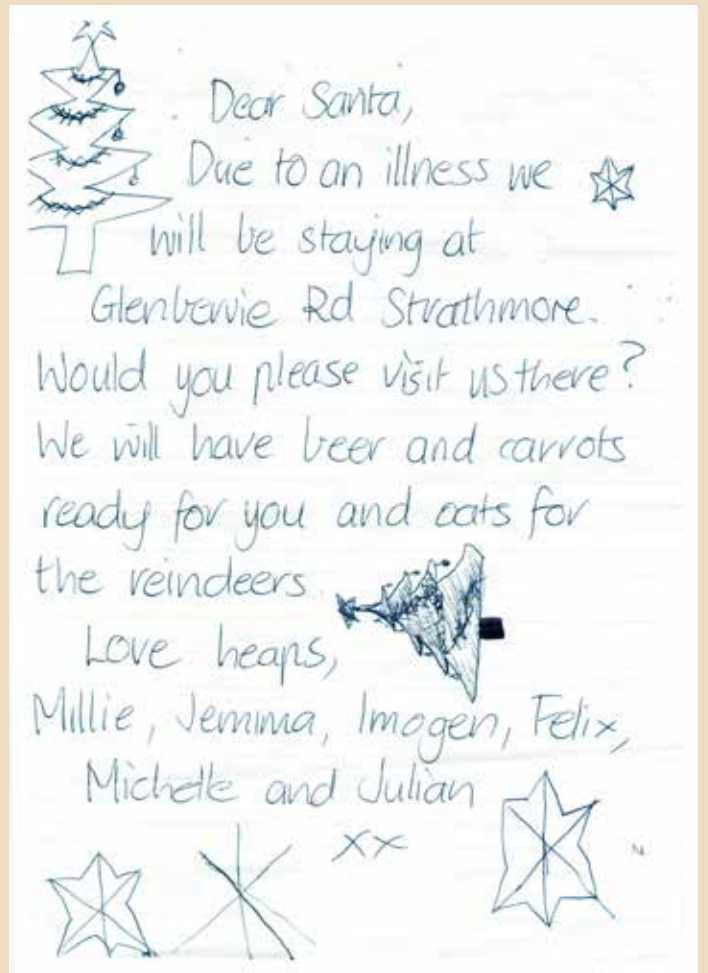 Dear Santa,
Due to an illness we
will be staying at
Glenbervie Rd Strathmore.
Would you please visit us there?
We will have beer and carrots
ready for you and oats for
the reindeers.
Love heaps,
Millie, Jemima, Imogen, Felix,
Michelle and Julian
xx